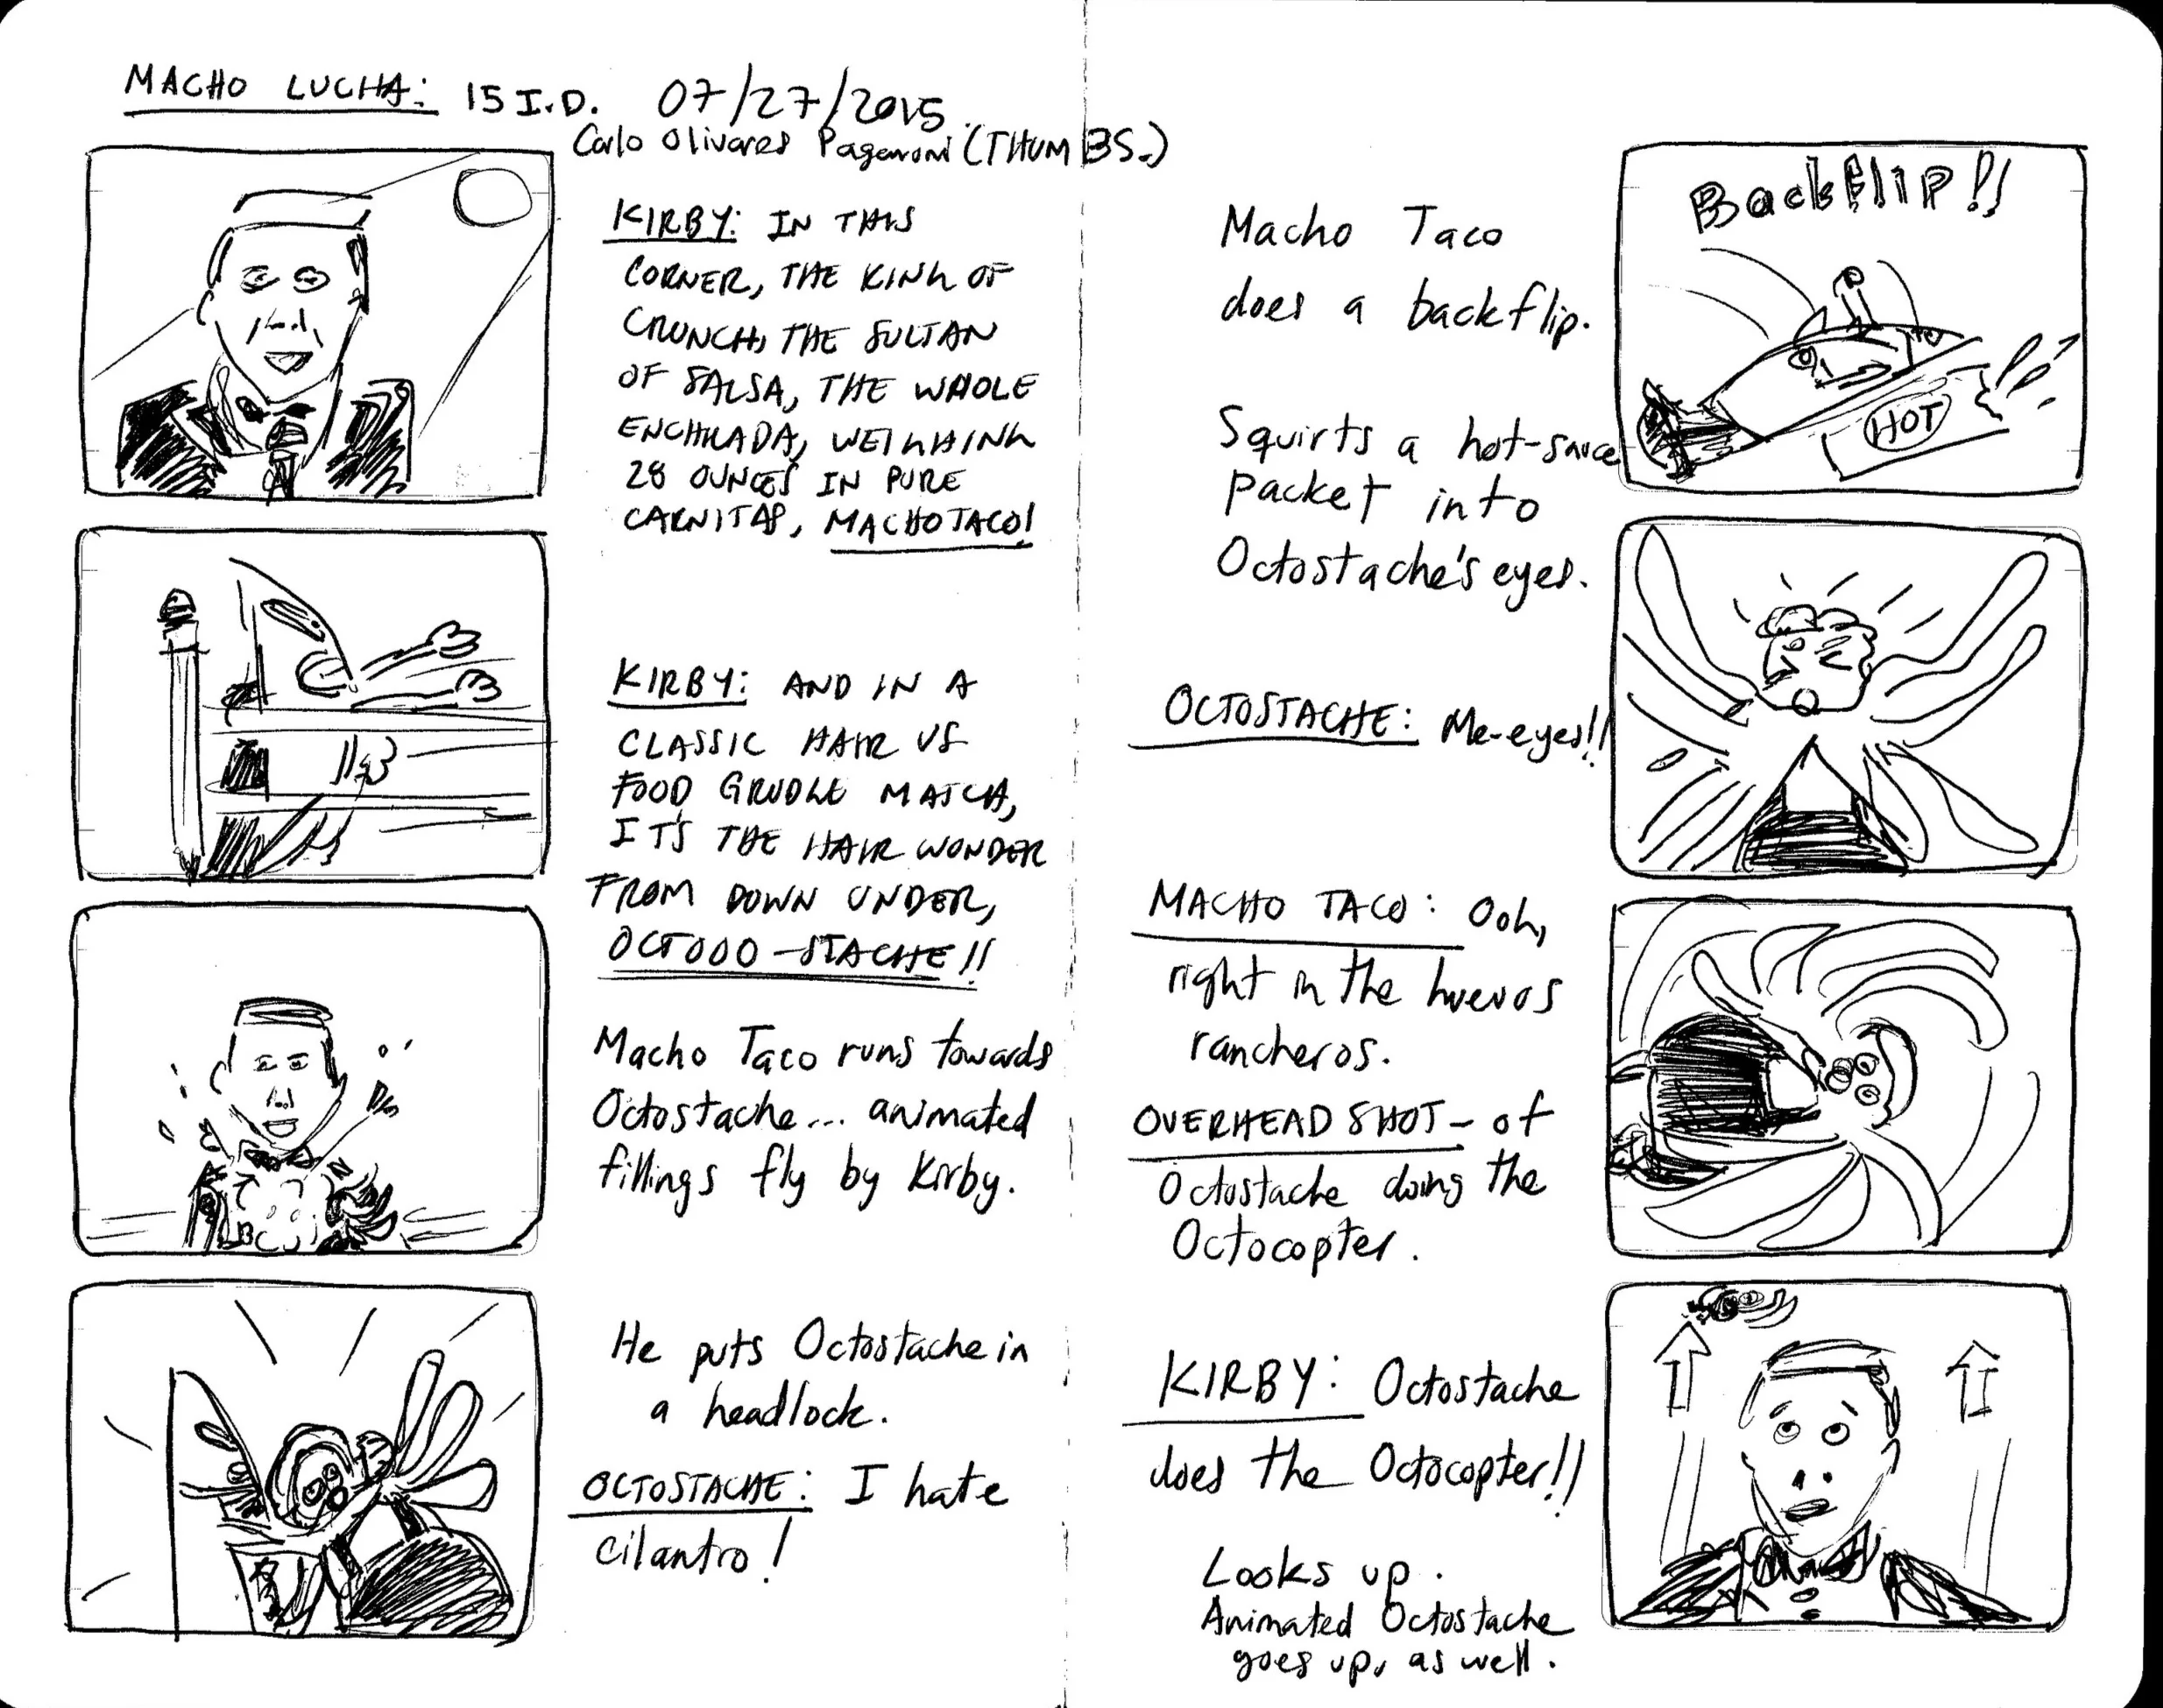 MACHO LUCHA: 15 I.D. 07/27/2015
Carlo Olivares Pagenoni (THUMBS.)
KIRBY: IN THIS
CORNER, THE KING OF
CRUNCH, THE SULTAN
OF SALSA, THE WHOLE
ENCHILADA, WEIGHING
28 OUNCES IN PURE
CARNITAS, MACHO TACO!
KIRBY: AND IN A
CLASSIC HAIR VS
FOOD GRUDGE MATCH,
IT'S THE HAIR WONDER
FROM DOWN UNDER,
OCTOOO-STACHE!!
Macho Taco runs towards
Octostache... animated
fillings fly by Kirby.
He puts Octostache in
a headlock.
OCTOSTACHE: I hate
cilantro!
Backflip!!
Macho Taco
does a backflip.
HOT
Squirts a hot-sauce
packet into
Octostache's eyes.
OCTOSTACHE: Me-eyes!!
MACHO TACO: Ooh,
right in the huevos
rancheros.
OVERHEAD SHOT- of
Octostache doing the
Octocopter.
KIRBY: Octostache
does the Octocopter!!
Looks up.
Animated Octostache
goes up, as well.